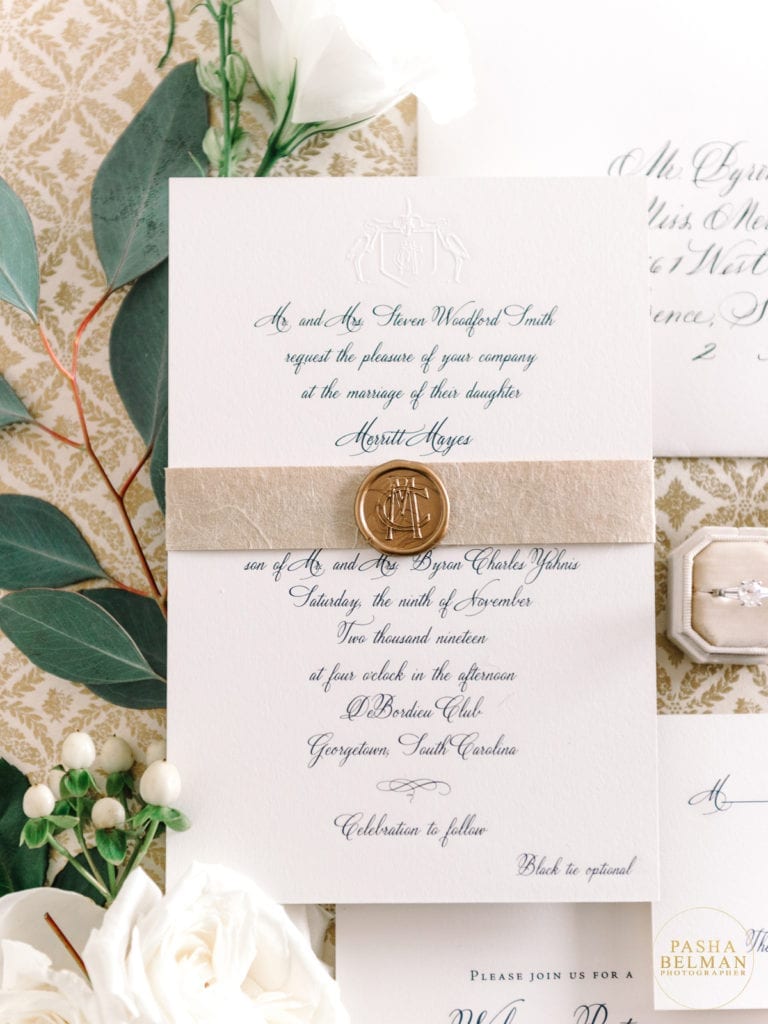 Mr. and Mrs. Steven Woodford Smith
request the pleasure of your company
at the marriage of their daughter
Merritt Mayes
son of Mr. and Mrs. Byron Charles Yahnis
Saturday, the ninth of November
Two thousand nineteen
at four o'clock in the afternoon
DeBordieu Club
Georgetown, South Carolina
Celebration to follow
Black tie optional
Mr. Byron
Miss. Mer
61 West
rence, S
2
M
PLEASE JOIN US FOR A
Welcome Party
PASHA
BELMAN
PHOTOGRAPHER